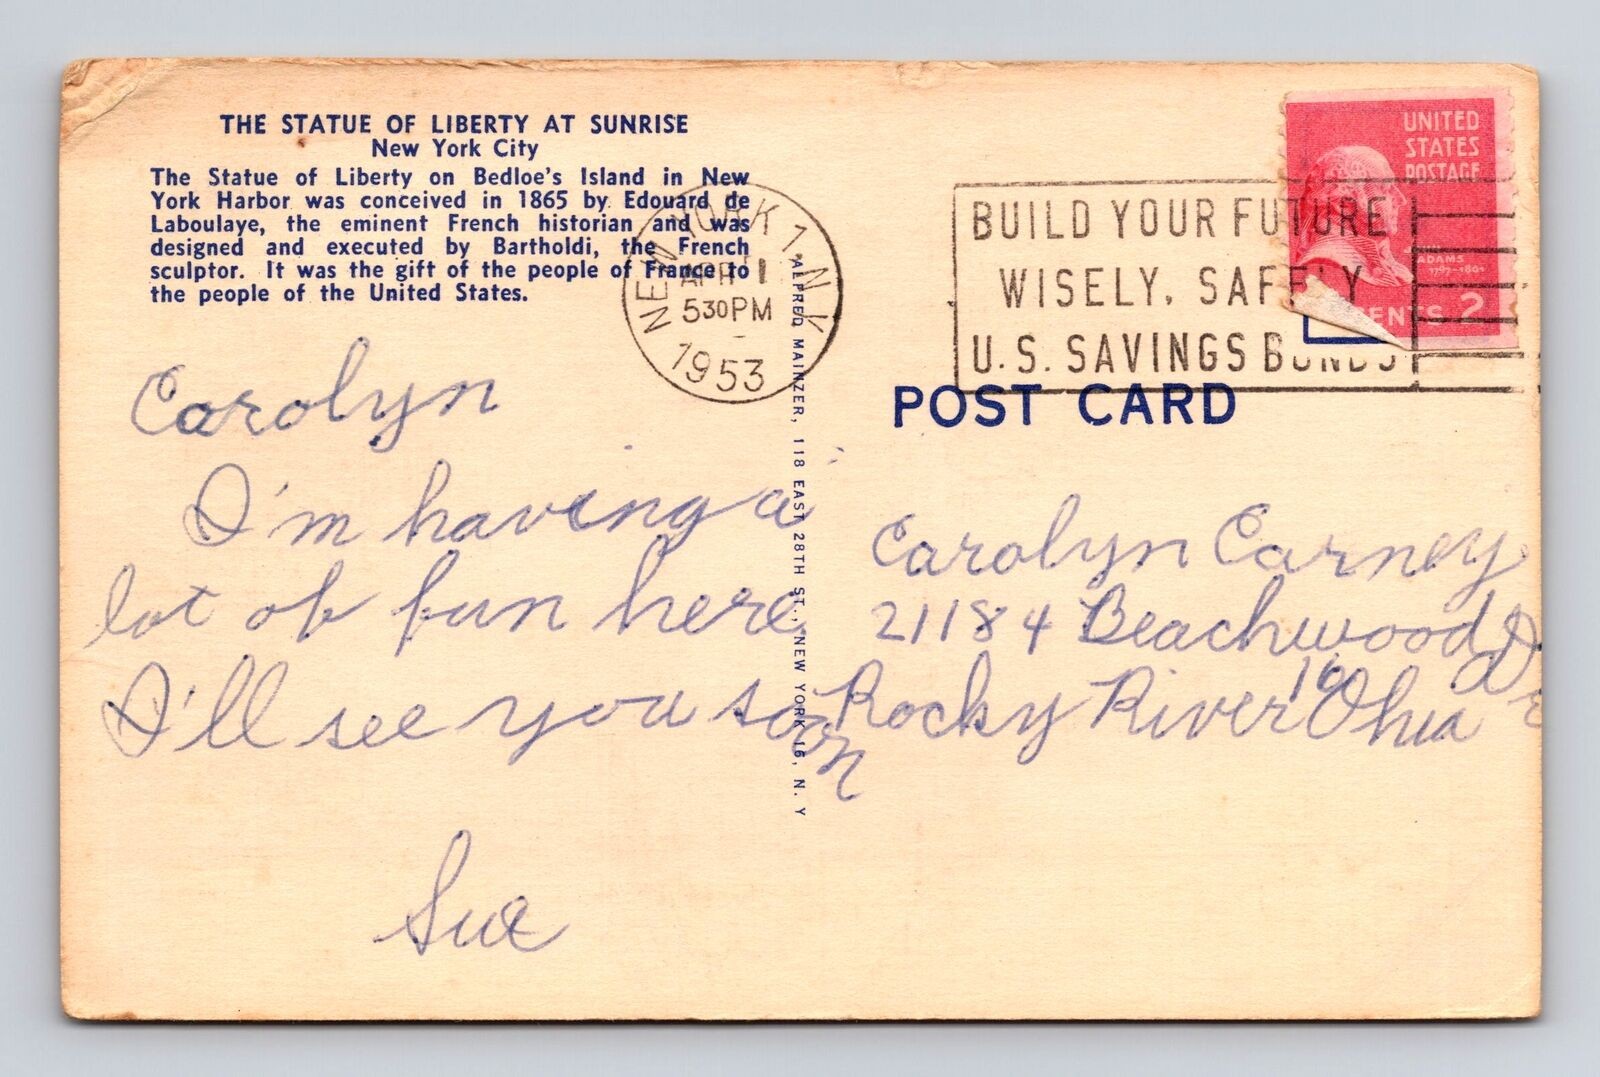 THE STATUE OF LIBERTY AT SUNRISE
New York City
The Statue of Liberty on Bedloe's Island in New
York Harbor was conceived in 1865 by Edouard de
Laboulaye, the eminent French historian and was
designed and executed by Bartholdi, the French
sculptor. It was the gift of the people of France to
the people of the United States.
NEW YORK 1, N.Y.
APR 1
530PM
1953
BUILD YOUR FUTURE
WISELY, SAFELY
U.S. SAVINGS BONDS
UNITED
STATES
POSTAGE
ADAMS
1797-1801
CENTS 2
POST CARD
ALFRED MAINZER, 118 EAST 28TH ST., NEW YORK 16, N. Y
Carolyn
I'm having a
lot of fun here
I'll see you soon
Sue
Carolyn Carney
21184 Beachwood Dr
Rocky River 16 Ohio